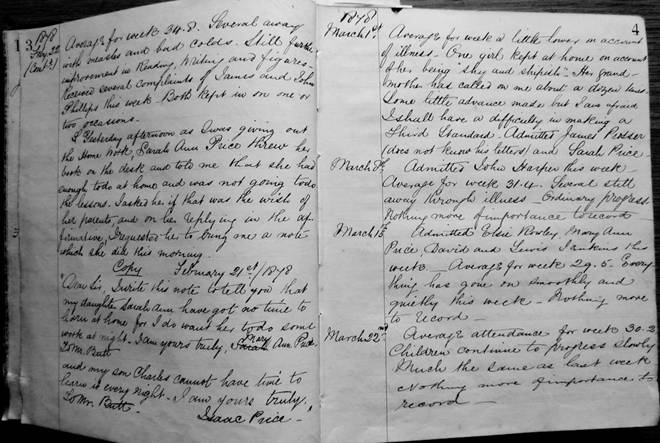 3
1878
Feby 22
(Cont.)
Average for week 34.8. Several away
with measles and bad colds. Still further
improvement in Reading, Writing and figures.
Received several complaints of James and John
Phillips this week. Both kept in on one or
two occasions.
Yesterday afternoon as I was giving out
the Home Work, Sarah Ann Price threw her
book on the desk and told me that she had
enough to do at home and was not going to do
the lessons. I asked her if that was the wish of
her parents, and on her replying in the af-
firmative, I requested her to bring me a note
which she did this morning.
Copy February 21st/1878
"Dear Sir, I write this note to tell you that
my daughter Sarah Ann have got no time to
learn at home for I do want her to do some
work at night. I am yours truly, Sarah Mary Ann Price
To Mr. Butt
and my son Charles cannot have time to
learn is every night. I am yours truly.
To Mr. Butt
Isaac Price"
4
1878
March 1st
Average for week a little lower on account
of illness. One girl kept at home on account
of her being shy and stupish. Her grand-
mother has called on me about a dozen times.
Some little advance made but I am afraid
I shall have a difficulty in making a
Third Standard. Admitted James Prosser
(does not know his letters) and Sarah Price.
March 8th
Admitted John Harper this week.
Average for week 31.4. Several still
away through illness. Ordinary progress.
Nothing more of importance to record
March 15
Admitted Elsie Rowley Mary Ann
Price, David and Lewis Jenkins this
week. Average for week 29.5. Every
thing has gone on smoothly and
quietly this week. Nothing more
to record
March 22nd
Average attendance for week 30.2
Children continue to progress slowly
Much the same as last week
Nothing more of importance to
record